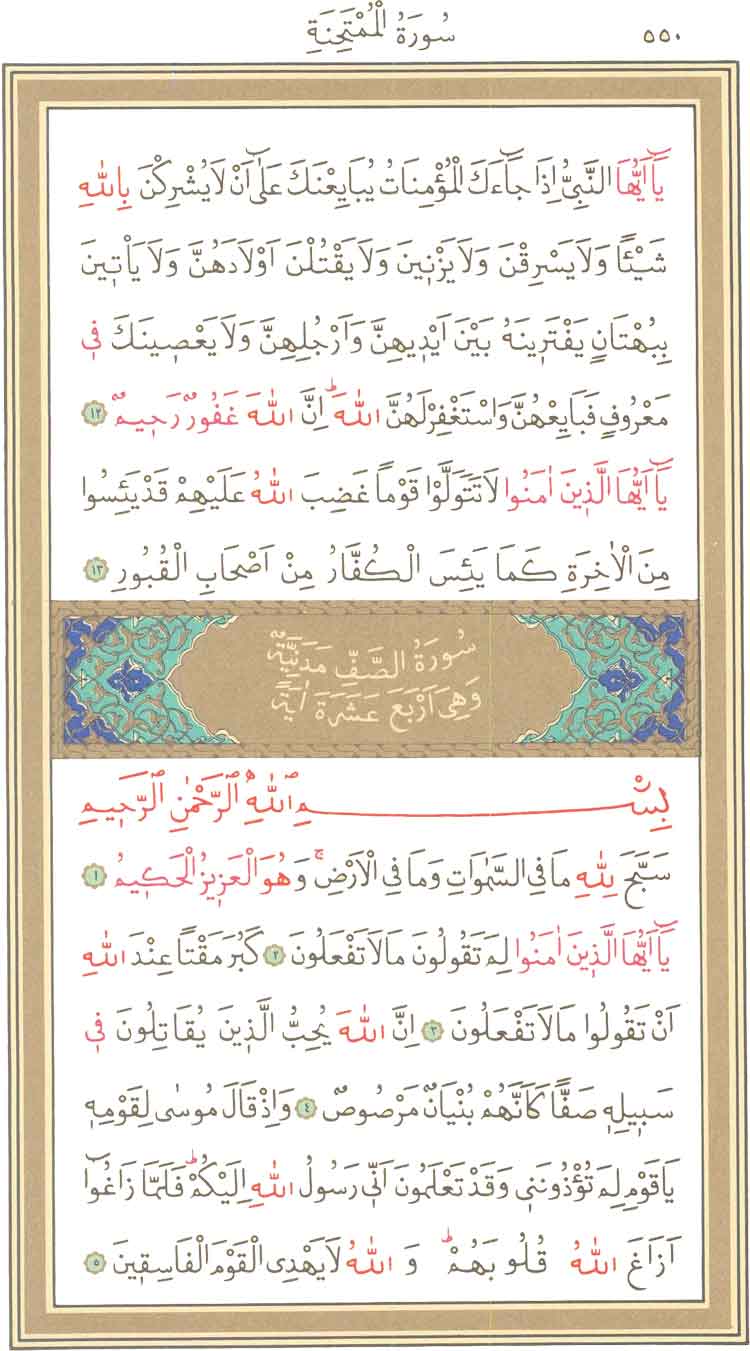 ٥٥٠ سُورَةُ الْمُمْتَحِنَةِ
يَٓا اَيُّهَا النَّبِيُّ اِذَا جَٓاءَكَ الْمُؤْمِنَاتُ يُبَايِعْنَكَ عَلٰٓى اَنْ لَا يُشْرِكْنَ بِاللّٰهِ
شَيْـًٔا وَلَا يَسْرِقْنَ وَلَا يَزْنٖينَ وَلَا يَقْتُلْنَ اَوْلَادَهُنَّ وَلَا يَاْتٖينَ
بِبُهْتَانٍ يَفْتَرٖينَهُ بَيْنَ اَيْدٖيهِنَّ وَاَرْجُلِهِنَّ وَلَا يَعْصٖينَكَ فٖي
مَعْرُوفٍ فَبَايِعْهُنَّ وَاسْتَغْفِرْ لَهُنَّ اللّٰهَؕ اِنَّ اللّٰهَ غَفُورٌ رَحٖيمٌ ١٢
يَٓا اَيُّهَا الَّذٖينَ اٰمَنُوا لَا تَتَوَلَّوْا قَوْمًا غَضِبَ اللّٰهُ عَلَيْهِمْ قَدْ يَئِسُوا
مِنَ الْاٰخِرَةِ كَمَا يَئِسَ الْكُفَّارُ مِنْ اَصْحَابِ الْقُبُورِ ١٣
سُورَةُ الصَّفِّ مَدَنِيَّةٌ
وَهِيَ اَرْبَعَ عَشَرَةَ اٰيَةً
بِسْمِ اللّٰهِ الرَّحْمٰنِ الرَّحٖيمِ
سَبَّحَ لِلّٰهِ مَا فِي السَّمٰوَاتِ وَمَا فِي الْاَرْضِۚ وَهُوَ الْعَزٖيزُ الْحَكٖيمُ ١
يَٓا اَيُّهَا الَّذٖينَ اٰمَنُوا لِمَ تَقُولُونَ مَا لَا تَفْعَلُونَ ٢ كَبُرَ مَقْتًا عِنْدَ اللّٰهِ
اَنْ تَقُولُوا مَا لَا تَفْعَلُونَ ٣ اِنَّ اللّٰهَ يُحِبُّ الَّذٖينَ يُقَاتِلُونَ فٖي
سَبٖيلِهٖ صَفًّا كَاَنَّهُمْ بُنْيَانٌ مَرْصُوصٌ ٤ وَاِذْ قَالَ مُوسٰى لِقَوْمِهٖ
يَا قَوْمِ لِمَ تُؤْذُونَنٖي وَقَدْ تَعْلَمُونَ اَنّٖي رَسُولُ اللّٰهِ اِلَيْكُمْؕ فَلَمَّا زَاغُٓوا
اَزَاغَ اللّٰهُ قُلُوبَهُمْؕ وَاللّٰهُ لَا يَهْدِي الْقَوْمَ الْفَاسِقٖينَ ٥